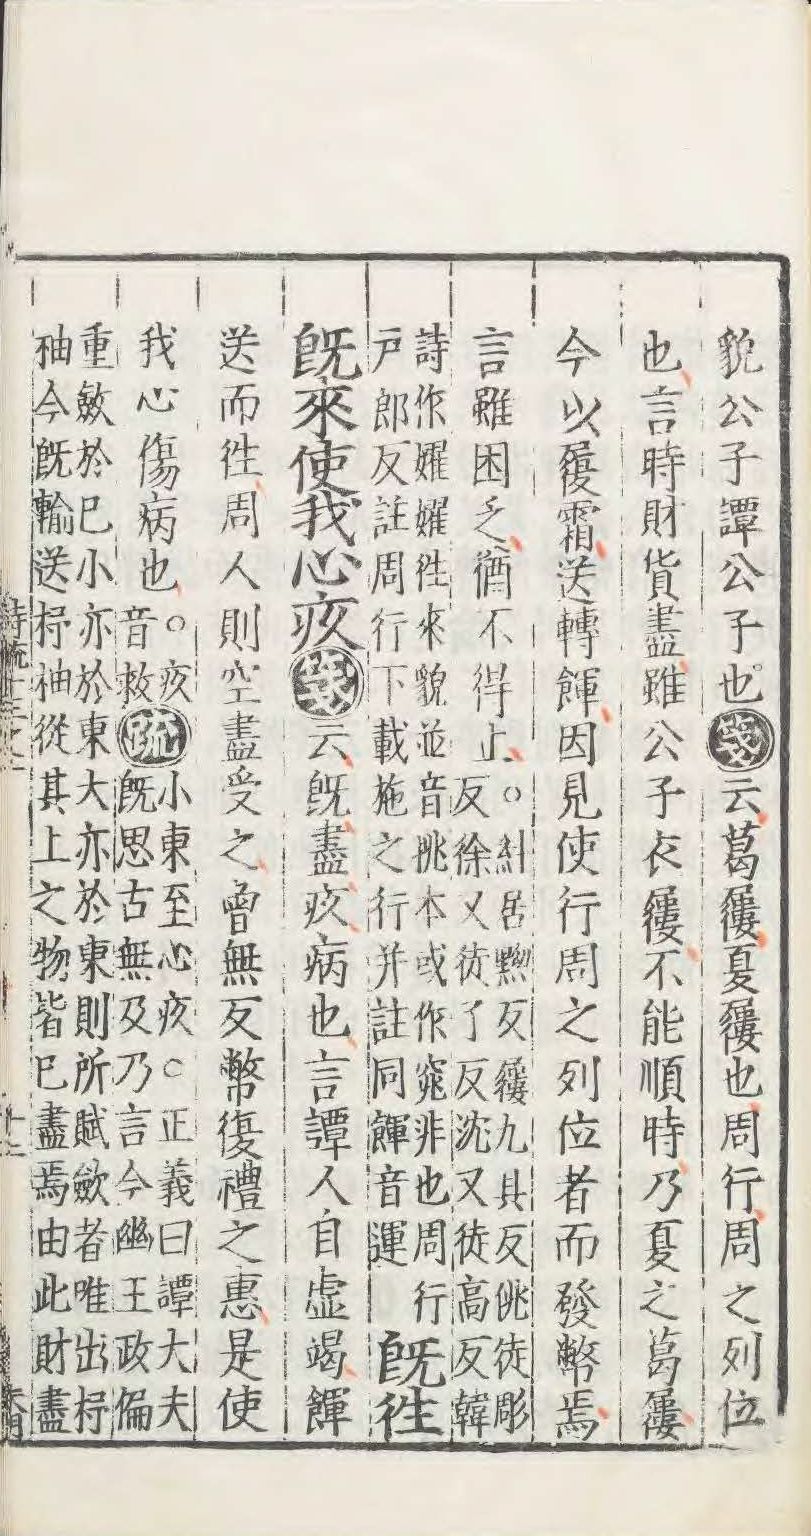 貌公子譚公子也箋云葛屨夏屨也周行周之列位
也言時財貨盡雖公子衣屨不能順時乃夏之葛屨
今以履霜送轉餫因見使行周之列位者而發幣焉
言雖困乏猶不得止○糾居黝反屨九具反佻徒彫
反徐又徒了反沈又徒高反韓
詩作嬥嬥往來貌並音挑本或作窕非也周行
戸郎反註周行下載施之行并註同餫音運
既往
既來使我心疚箋云既盡疚病也言譚人自虛竭餫
送而徃周人則空盡受之曾無反幣復禮之惠是使
我心傷病也○疚
音救
疏小東至心疚○正義曰譚大夫
既思古無及乃言今幽王政偏
重斂於已小亦於東大亦於東則所賦斂者唯出杼
柚今既輸送杼柚從其上之物皆已盡焉由此財盡